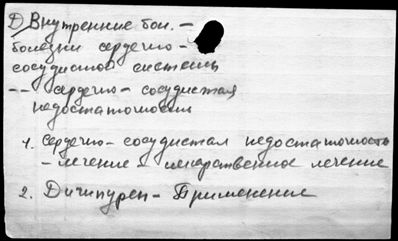 Д) Внутренние бол. –
болезни сердечно –
сосудистой системы
-- сердечно – сосудистая
недостаточность
1. Сердечно – сосудистая недостаточность
– лечение – лекарственное лечение
2. Дигипурен – Применение